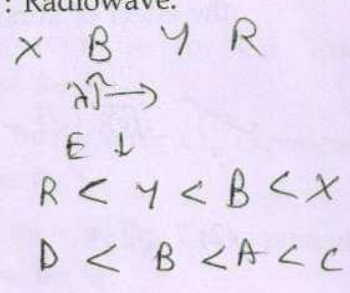 : Radiowave.
X B Y R
λ↑ →
E ↓
R < Y < B < X
D < B < A < C